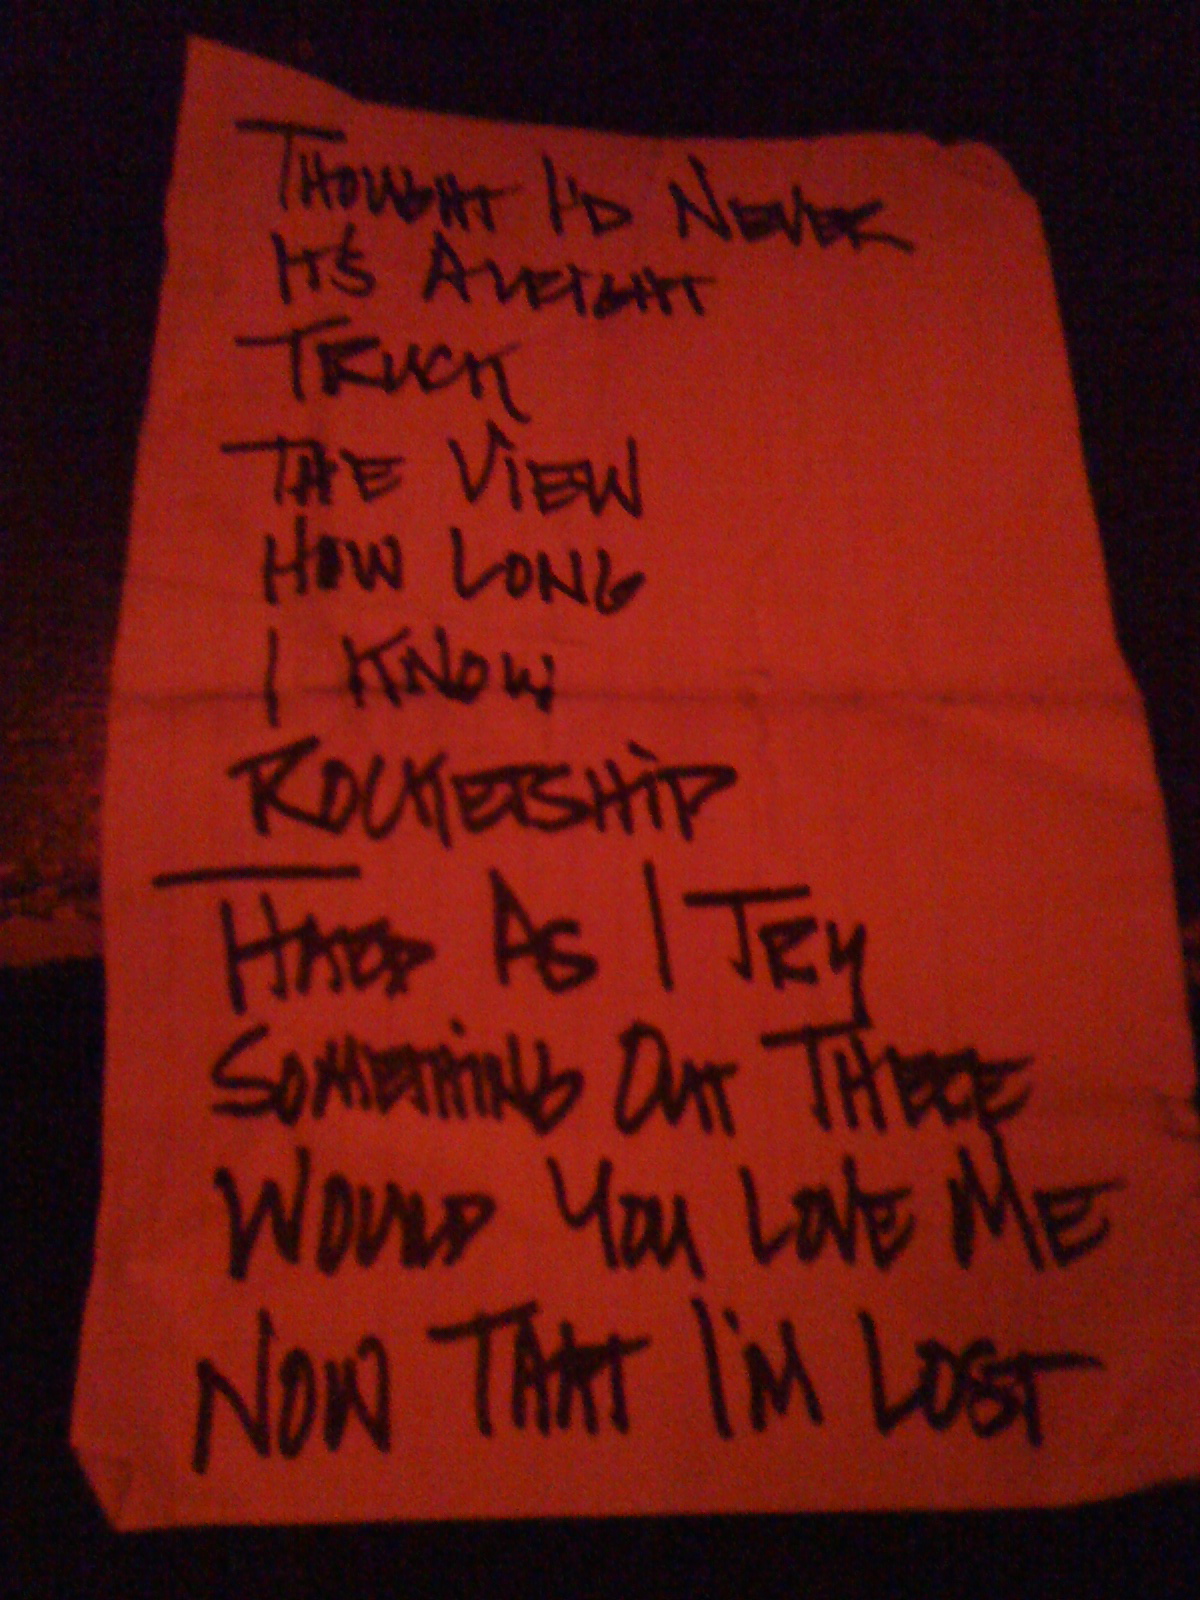 THOUGHT I'D NEVER
IT'S ALRIGHT
TRUCK
THE VIEW
HOW LONG
I KNOW
ROCKETSHIP
HARD AS I TRY
SOMETHING OUT THERE
WOULD YOU LOVE ME
NOW THAT I'M LOST